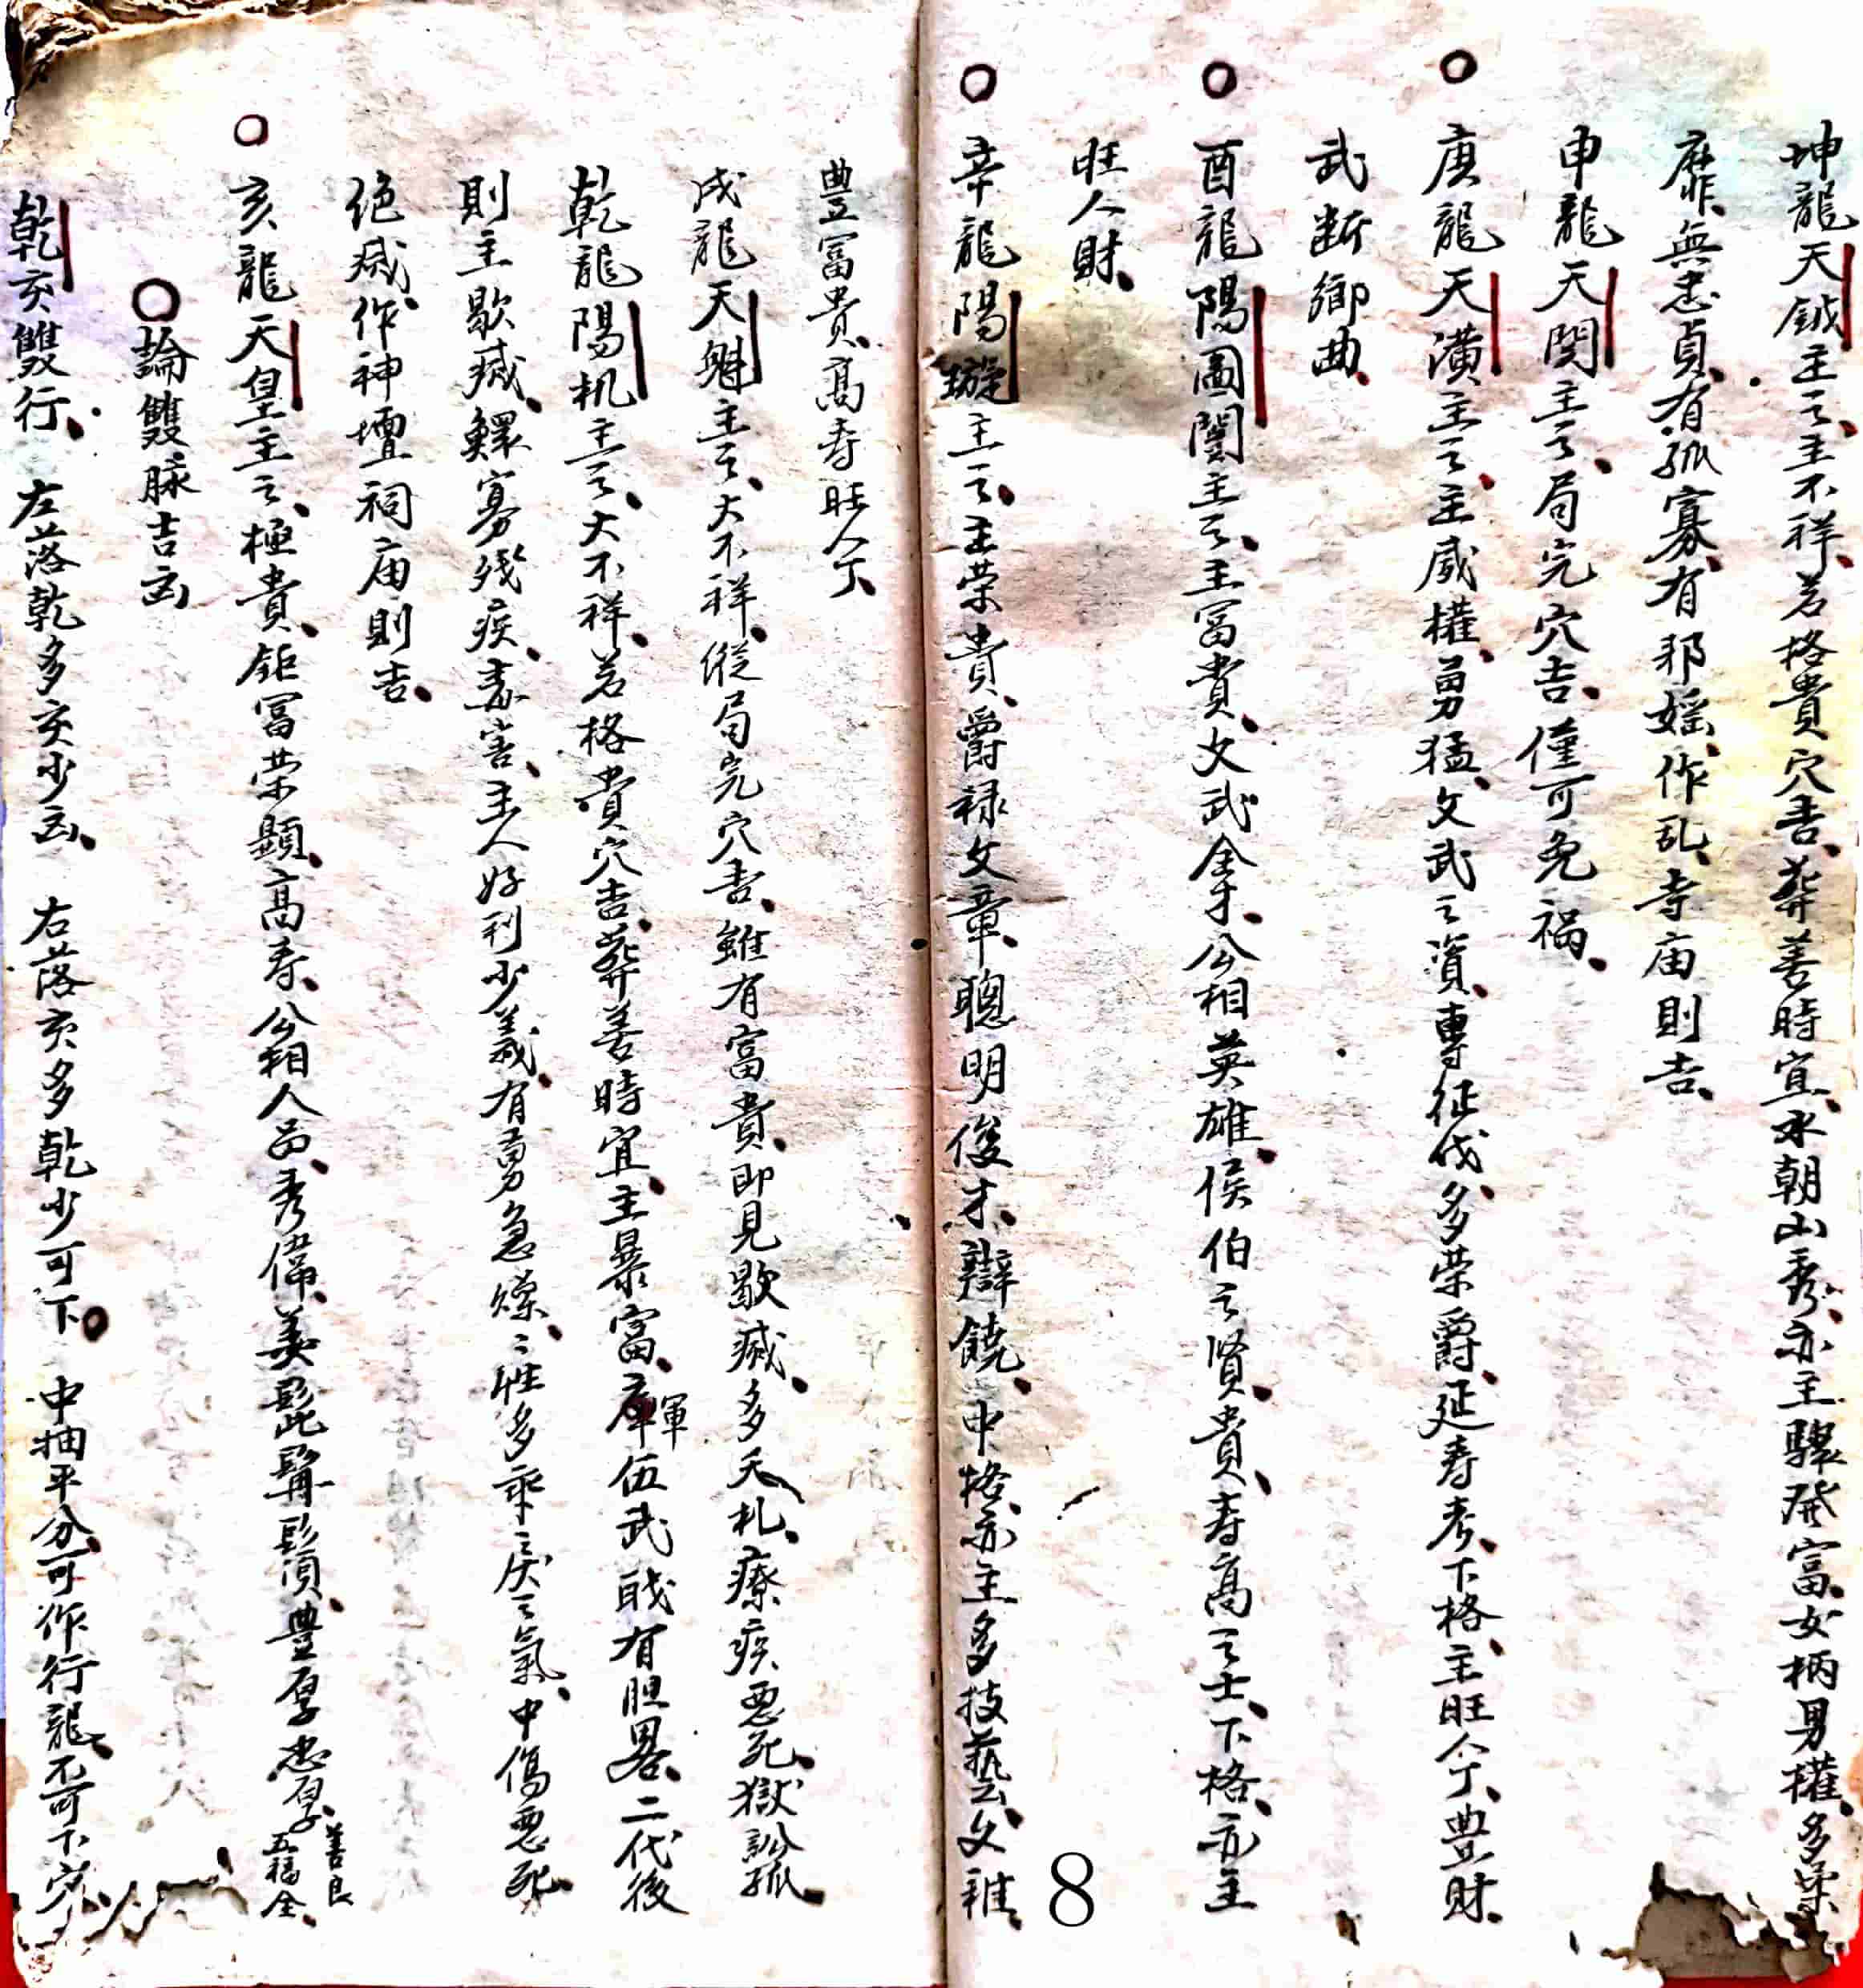 坤龍天鉞主之、主不祥、若格貴穴吉、葬善時宜、水朝山秀、亦主驟發富、女柄男權、多柔
靡、無忠貞、有孤寡、有邪婬、作乱、寺庙則吉、
申龍天関主之、局完穴吉、僅可免禍、
○庚龍天潢主之、主威權、勇猛、文武之資、專征伐、多荣爵、延寿考、下格、主旺人丁、豊財
武断鄉曲、
○酉龍陽圖闓主之、主冨貴、文武全才、公相英雄、侯伯之賢、貴、寿高之士、下格、亦主
旺人財、
○辛龍陽璇主之、主荣貴、爵禄文章、聰明俊才、辯饒、中格、亦主多技藝、文雅、
8
豊富貴、高寿旺人丁、
戌龍天魁主之、大不祥、縱局完穴吉、雖有富貴、即見歇滅、多夭札、療疾悪死、獄訟孤、
乾龍陽机主之、大不祥、若格貴穴吉、葬善時宜、主暴富、軍伍武戝有胆畧、二代後
則主歇滅、鰥寡残疾、毒害、主人好刋少義、有勇急燥、之性多乖之戾之氣、中傷悪死、
绝滅、作神壇祠庙則吉、
○亥龍天皇主之、極貴、鉅冨荣顯、高寿、公相人品、秀偉、美髭髯鬚、豊厚忠厚、善良五福全、
○論雙脉吉凶
乾亥雙行、左落乾多亥少凶、右落亥多乾少可下。中抽平分、可作行龍、不可下穴、